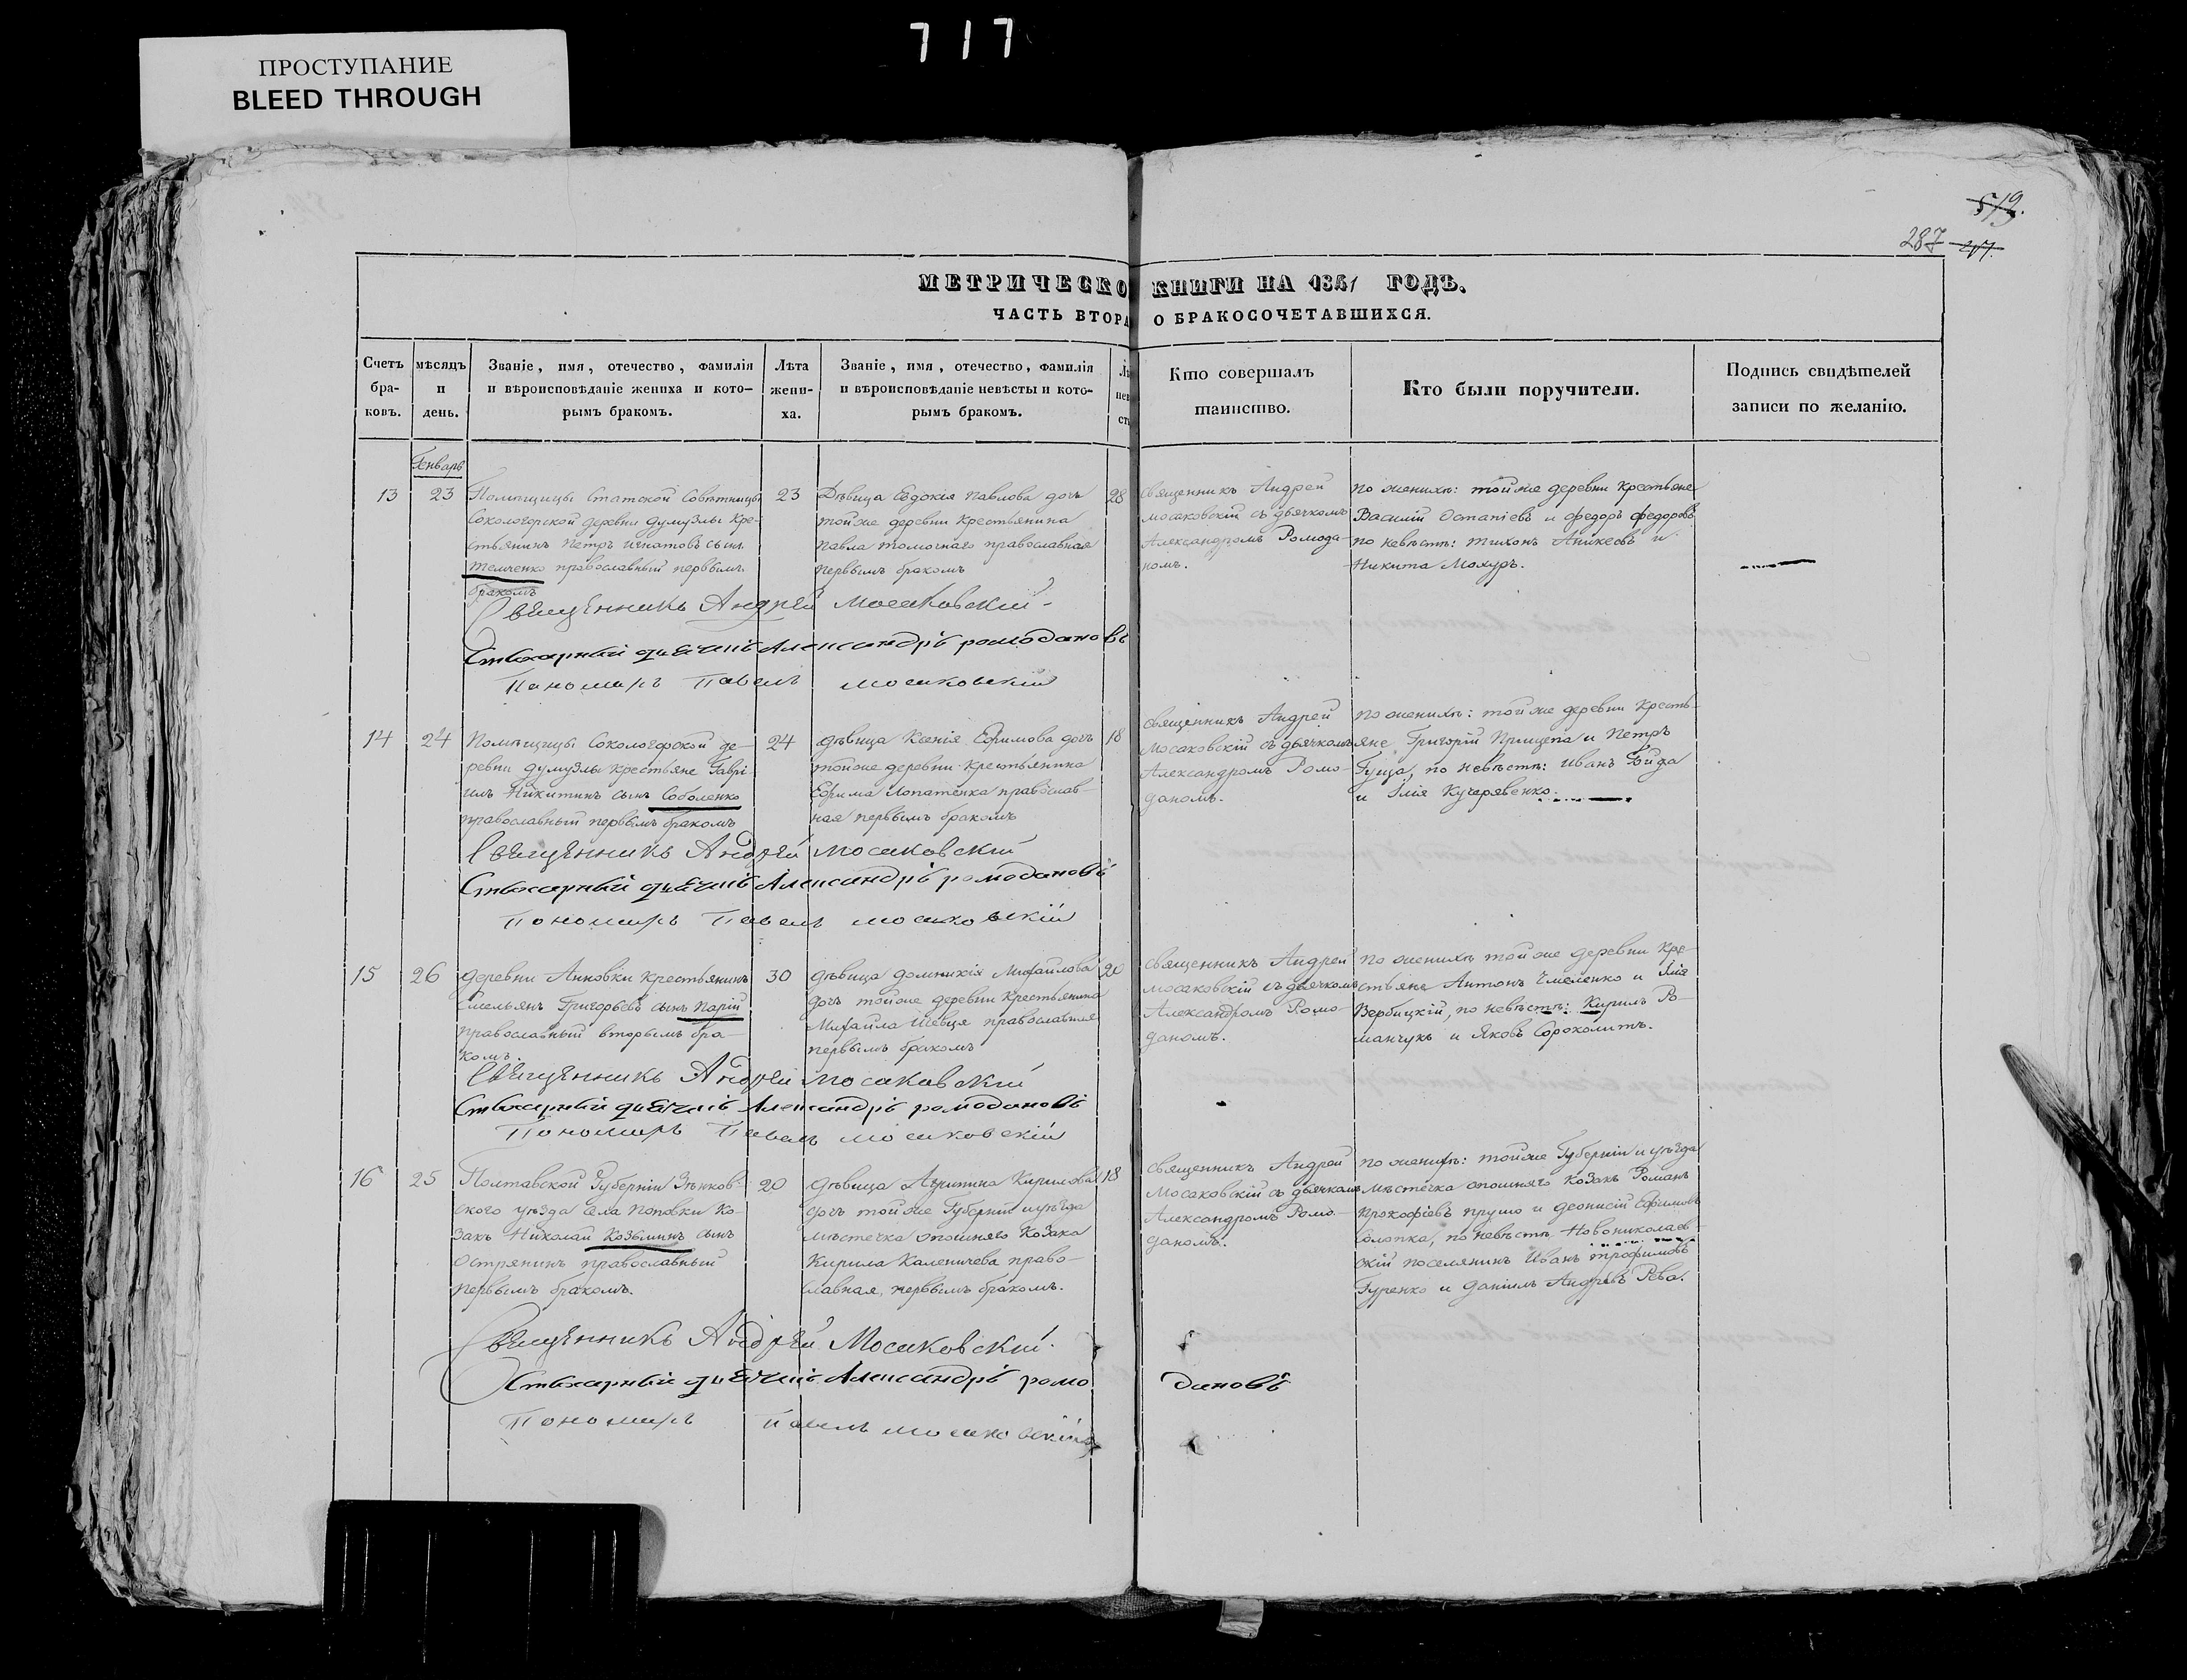 717
ПРОСТУПАНИЕ
BLEED THROUGH
519.
287
МЕТРИЧЕСКО КНИГИ НА 1841 ГОДЪ.
ЧАСТЬ ВТОРА О БРАКОСОЧЕТАВШИХСЯ.
Счетъ бра-ковъ.
мѣсяцъ и день.
Званіе, имя, отечество, фамилія
и вѣроисповѣданіе жениха и кото-
рымъ бракомъ.
Лѣта жени-ха.
Званіе, имя, отечество, фамилія
и вѣроисповѣданіе невѣсты и кото-
рымъ бракомъ.
Кто совершалъ
таинство.
Кто были поручители.
Подпись свидѣтелей
записи по желанію.
Генварь
13
23
Помѣщицы Статской Совѣтницы
Сокологорской деревни Думузлы Кре-
стьянинъ Петръ Игнатовъ сынъ
Темченко православный первымъ
бракомъ
23
Дѣвица Евдокія Павлова дочь
тойже деревни Крестьянина
Павла православная
первымъ бракомъ
28
Священникъ Андрей
Мосаковскій съ дьячкомъ
Александромъ Ромода-
номъ.
по женихѣ: тойже деревни крестьяне
Василій Остапіевъ и Федоръ Федоровъ
по невѣстѣ: Тихонъ Аникеевъ и
Никита Мохуръ.
Священникъ Андрей Мосаковскій
Стихарный дьячекъ Александръ Ромодановъ
Пономарь Павелъ Мосаковскій
14
24
Помѣщицы Сокологорской де-
ревни Думузлы крестьяне Гаврі-
илъ Никитинъ сынъ Соболенко
православный первымъ бракомъ
24
дѣвица Ксенія Ефимова дочь
тойже деревни крестьянина
Ефима Лопатенка православ-
ная первымъ бракомъ
18
Священникъ Андрей
Мосаковскій съ дьячкомъ
Александромъ Ромо-
даномъ.
по женихѣ: тойже деревни Кресть-
яне Григорій Прищепа и Петръ
Гуща, по невѣстѣ: Иванъ
и Илія Кучерявенко.
Священникъ Андрей Мосаковскій
Стихарный дьячекъ Александръ Ромодановъ
Пономарь Павелъ Мосаковскій
15
26
деревни Анновки крестьянинъ
Емельянъ Григорьевъ сынъ Парій
православный вторымъ бра-
комъ.
30
дѣвица Домникія Михайлова
дочь тойже деревни Крестьянина
Михайла Шевця православная
первымъ бракомъ
20
Священникъ Андрей
Мосаковскій съ дьячкомъ
Александромъ Ромо-
даномъ.
по женихѣ тойже деревни Кре-
стьяне Антонъ Емеленко и Илія
Вербицкій, по невѣстѣ: Кирилъ Ро-
манчукъ и Яковъ Сороколитъ.
Священникъ Андрей Мосаковскій
Стихарный дьячекъ Александръ Ромодановъ
Пономарь Павелъ Мосаковскій
16
25
Полтавской Губерніи Зѣньков-
ского уѣзда села Поповки Ко-
закъ Николай Козьминъ сынъ
Острянинъ православный
первымъ бракомъ.
20
дѣвица Акулина Кирилова
дочь тойже Губерніи и уѣзда
мѣстечка Опошнего Козака
Кирила Каленичева право-
славная, первымъ бракомъ.
18
Священникъ Андрей
Мосаковскій съ дьячкомъ
Александромъ Ромо-
даномъ.
по женихѣ: тойже Губерніи и уѣзда
мѣстечка Опошнего Козакъ Романъ
Прокофіевъ и Деонисій Ефимовъ
по невѣстѣ Новониколаев-
скій поселянинъ Иванъ Трофимовъ
Гуренко и Даніилъ Андрѣевъ Рева.
Священникъ Андрей Мосаковскій
Стихарный дьячекъ Александръ Ромо дановъ
Пономарь Павелъ Мосаковскій